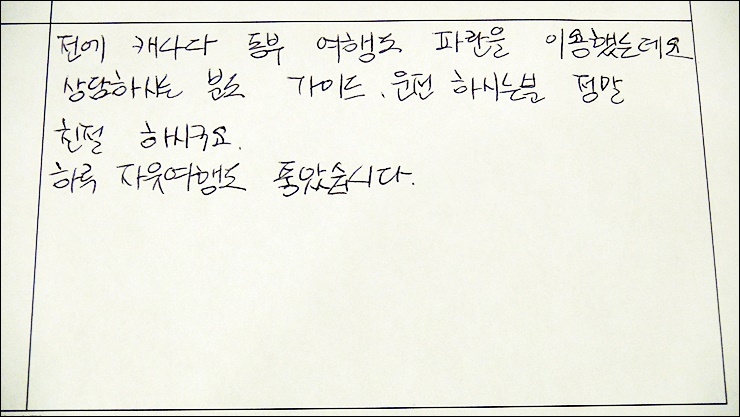 전에 캐나다 동부 여행도 파란을 이용했는데요
상담하시는 분도 가이드. 운전 하시는분 정말
친절 하시구요.
하루 자유여행도 좋았습니다.